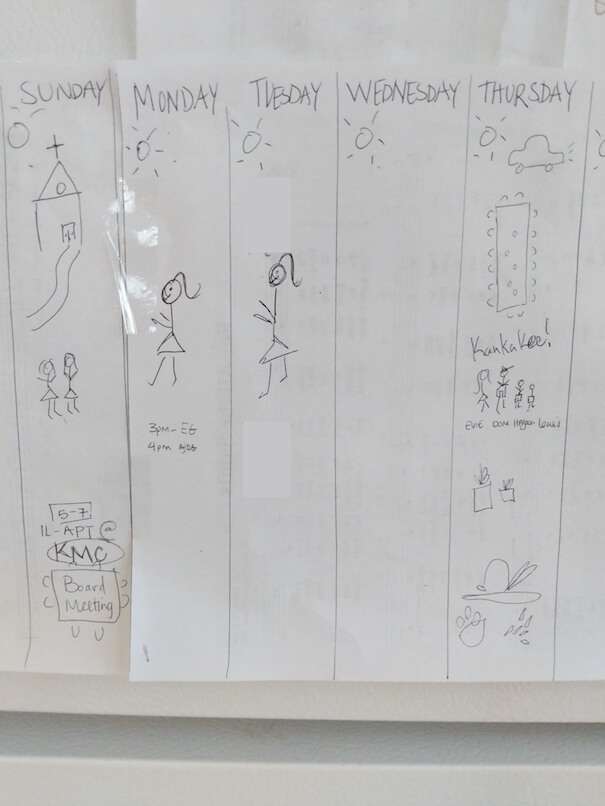 SUNDAY
MONDAY
TUESDAY
WEDNESDAY
THURSDAY
5-7
IL-APT @
KMC
Board
Meeting
3pm- EG
4pm
Kankakee!
EVIE DOM Hagan Louis